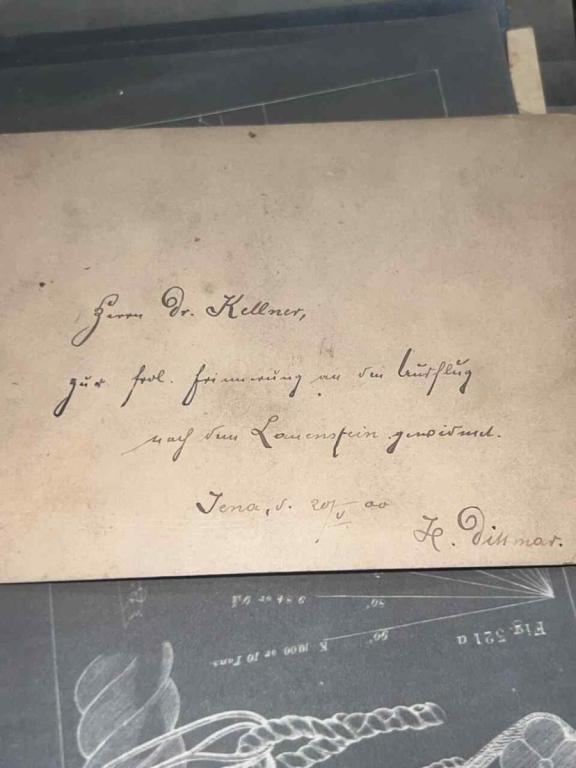 Herrn Dr. Kellner,
zur frdl. Erinnerung an den Ausflug
nach dem Lauenstein gewidmet.
Jena, d. 20/V 00
H. Dittmar.
90°
80°
K 1000 or 10 Tans.
Fig. 521a